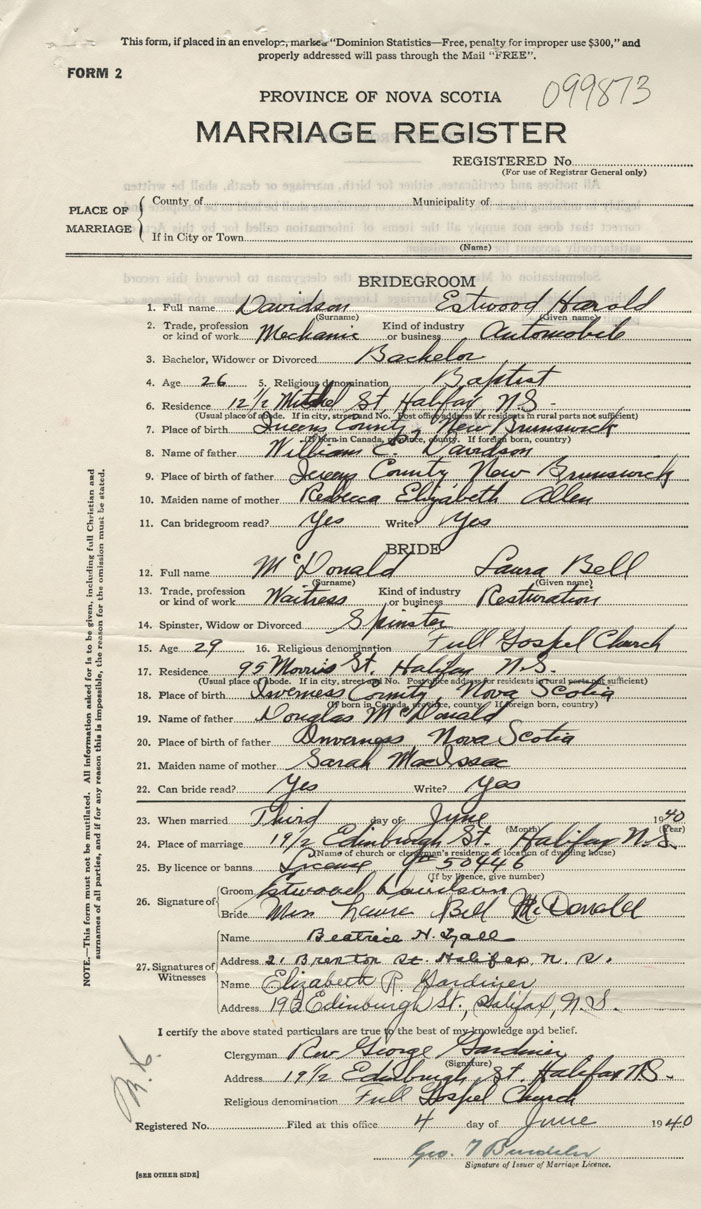 This form, if placed in an envelope, marked "Dominion Statistics—Free, penalty for improper use $300," and
properly addressed will pass through the Mail "FREE".
FORM 2
PROVINCE OF NOVA SCOTIA
099873
MARRIAGE REGISTER
REGISTERED No.
(For use of Registrar General only)
PLACE OF MARRIAGE
County of Municipality of
If in City or Town
(Name)
BRIDEGROOM
1. Full name Davidson Estwood Harold
(Surname) (Given name)
2. Trade, profession or kind of work Mechanic Kind of industry or business Automobile
3. Bachelor, Widower or Divorced Bachelor
4. Age 26 5. Religious denomination Baptist
6. Residence 12½ Mitchel St. Halifax N.S.
(Usual place of abode. If in city, street and No. Post office address for residents in rural parts not sufficient)
7. Place of birth Queens County, New Brunswick
(If born in Canada, province, county. If foreign born, country)
8. Name of father William E. Davidson
9. Place of birth of father Queens County New Brunswick
10. Maiden name of mother Rebecca Elizabeth Allen
11. Can bridegroom read? Yes Write? Yes
BRIDE
12. Full name McDonald Laura Bell
(Surname) (Given name)
13. Trade, profession or kind of work Waitress Kind of industry or business Resturation
14. Spinster, Widow or Divorced Spinster
15. Age 29 16. Religious denomination Full Gospel Church
17. Residence 95 Morris St. Halifax N.S.
(Usual place of abode. If in city, street and No. Post office address for residents in rural parts not sufficient)
18. Place of birth Inverness County, Nova Scotia
(If born in Canada, province, county. If foreign born, country)
19. Name of father Douglas McDonald
20. Place of birth of father Inverness Nova Scotia
21. Maiden name of mother Sarah MacIssac
22. Can bride read? Yes Write? Yes
23. When married Third day of June 1940
(Month) (Year)
24. Place of marriage 19½ Edinburgh St. Halifax N.S.
(Name of church or clergyman's residence or location of dwelling house)
25. By licence or banns License 50446
(If by licence, give number)
26. Signature of
Groom Estwood Davidson
Bride Miss Laura Bell McDonald
27. Signatures of Witnesses
Name Beatrice N.
Address 21 Brenton St. Halifax, N. S.
Name Elizabeth P. Gardiner
Address Edinburgh St., Halifax, N.S.
I certify the above stated particulars are true to the best of my knowledge and belief.
Clergyman Rev. George Gardiner
(Signature)
Address 19½ Edinburgh St. Halifax N.S.
Religious denomination Full Gospel Church
Registered No. Filed at this office 4 day of June 1940
Geo. T
Signature of Issuer of Marriage Licence.
[SEE OTHER SIDE]
NOTE.—This form must not be mutilated. All information asked for is to be given, including full Christian and
surnames of all parties, and if for any reason this is impossible, the reason for the omission must be stated.